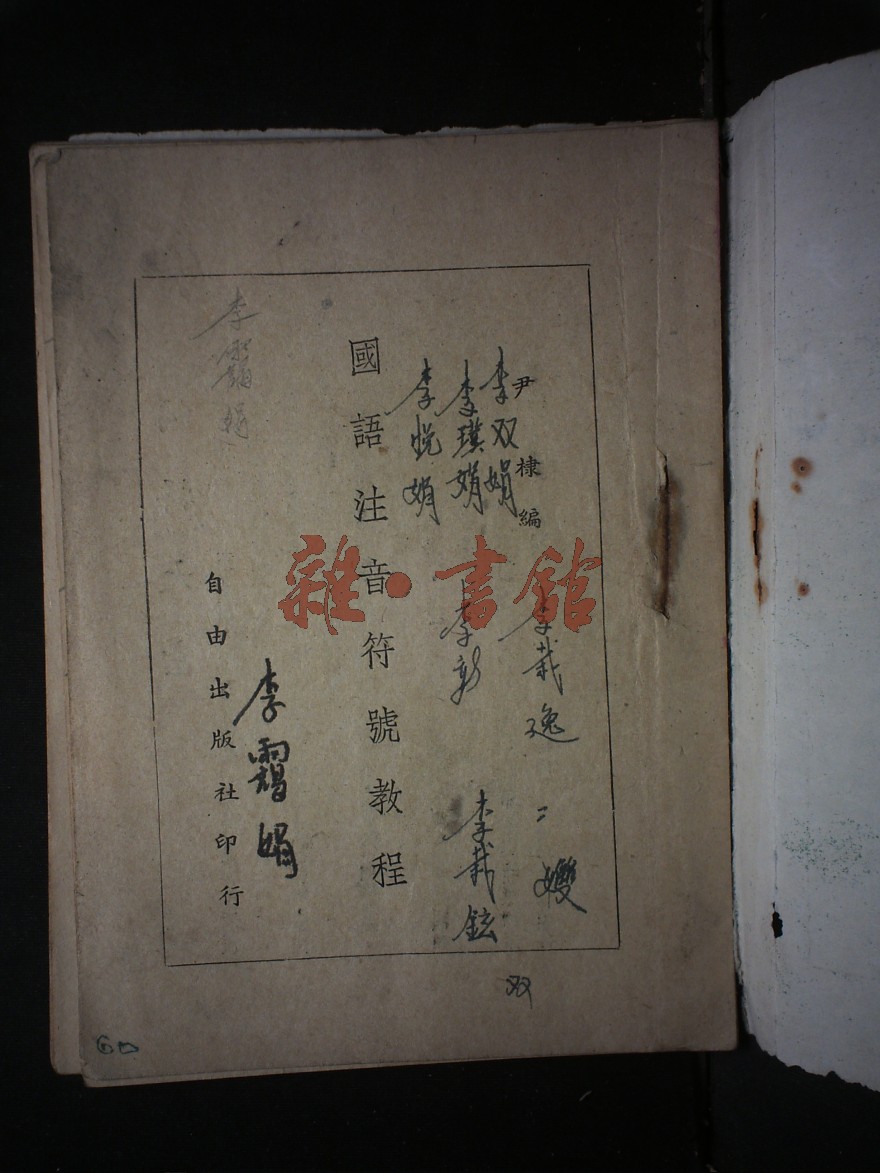 尹棣編
李双娟
李璞娟
李悦娟
國語注音符號教程
自由出版社印行
李靄娟
李栽逸
二嫂
李彰
李栽鉉
双
雜·書館